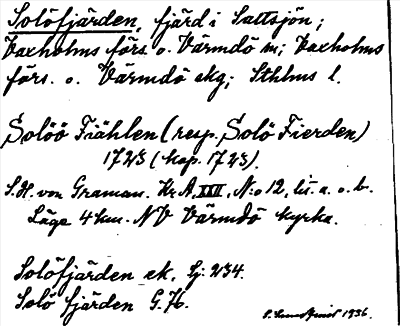 Solöfjärden, fjärd i Saltsjön;
Vaxholms förs. o. Värmdö sn; Vaxholms
förs. o. Värmdö skg; Sthlms l.
Solöö Fiählen (resp. Solö Fierden)
1723 (kop. 1723).
S.H. von Graman. Kr. A, XXII, N:o 12, lit. a. o. b.
Läge 4 km. NV Värmdö kyrka.
Solöfjärden ek. Sj. 234.
Solö fjärden G. 76.
1936.